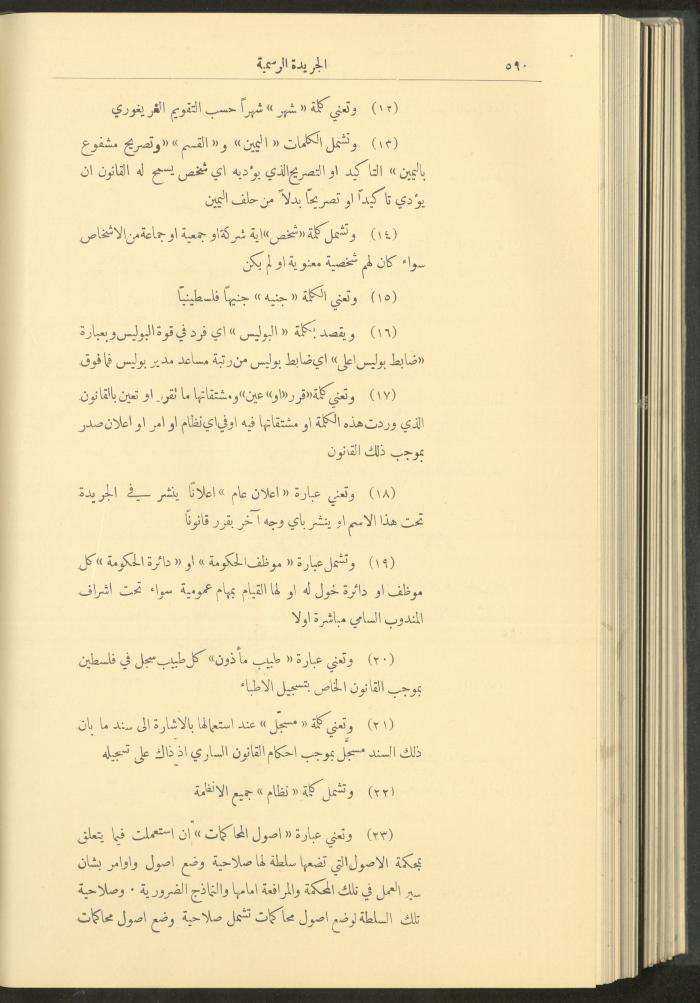 ٥٩٠
الجريدة الرسمية
(١٢) وتعني كلمة « شهر » شهراً حسب التقويم الغريغوري
(١٣) وتشمل الكلمات « اليمين » و« القسم » « وتصريح مشفوع
باليمين » التاكيد او التصريح الذي يؤديه اي شخص يسمح له القانون ان
يؤدي تاكيداً او تصريحاً بدلاً من حلف اليمين
(١٤) وتشمل كلمة «شخص» اية شركة او جمعية او جماعة من الاشخاص
سواء كان لهم شخصية معنوية او لم يكن
(١٥) وتعني الكلمة « جنيه » جنيهاً فلسطينياً
(١٦) ويقصد بكلمة « البوليس » اي فرد في قوة البوليس وبعبارة
«ضابط بوليس اعلى» اي ضابط بوليس من رتبة مساعد مدير بوليس فما فوق
(١٧) وتعني كلمة «قرر» او« عين» ومشتقاتها ما تقرر او تعين بالقانون
الذي وردت هذه الكلمة او مشتقاتها فيه او في اي نظام او امر او اعلان صدر
بموجب ذلك القانون
(١٨) وتعني عبارة « اعلان عام » اعلانًا ينشر في الجريدة
تحت هذا الاسم او ينشر باي وجه آخر يقرر قانونًا
(١٩) وتشمل عبارة « موظف الحكومة » او « دائرة الحكومة » كل
موظف او دائرة خول له او لها القيام بمهام عمومية سواء تحت اشراف
المندوب السامي مباشرة اولا
(٢٠) وتعني عبارة « طبيب مأذون» كل طبيب سجل في فلسطين
بموجب القانون الخاص بتسجيل الاطباء
(٢١) وتعني كلمة « مسجّل » عند استعمالها بالاشارة الى سند ما بان
ذلك السند مسجَّل بموجب احكام القانون الساري اذ ذاك على تسجيله
(٢٢) وتشمل كلمة « نظام » جميع الانظمة
(٢٣) وتعني عبارة « اصول المحاكمات » ان استعملت فيما يتعلق
بمحكمة الاصول التي تضعها سلطة لها صلاحية وضع اصول واوامر بشان
سير العمل في تلك المحكمة والمرافعة امامها والنماذج الضرورية ٠ وصلاحية
تلك السلطة لوضع اصول محاكمات تشمل صلاحية وضع اصول محاكمات